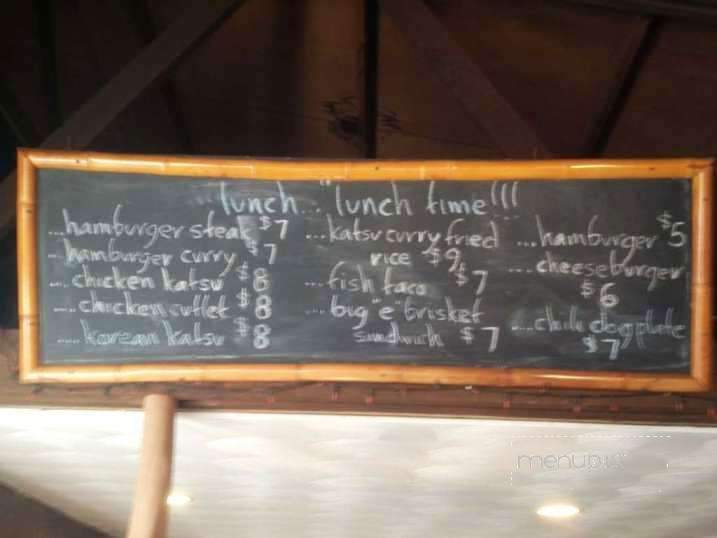 lunch... "lunch time!!!
...hamburger steak $7
...hamburger curry $7
...chicken katsu $8
....chicken cutlet $8
.....korean katsu $8
...katsu curry fried
rice $9
...fish taco $7
...big "e" brisket
sandwich $7
...hamburger $5
...cheeseburger
$6
...chili dog plate
$7
menupix